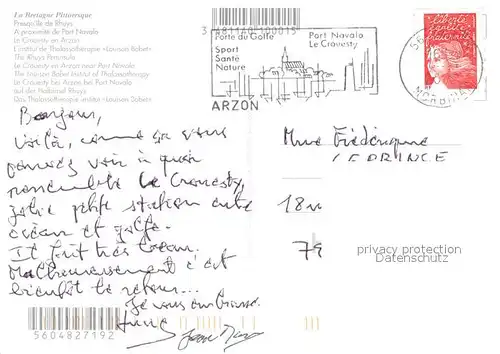 La Bretagne Pittoresque
Presqu'île de Rhuys
A proximité de Port Navalo
Le Crouesty en Arzon
L'institut de Thalassothérapie «Louison Bobet»
The Rhuys Peninsula
Le Crouesty en Arzon near Port Navalo
The Louison Bobet Institut of Thalassotherapy
Le Crouesty bei Arzon bei Port Navalo
auf der Halbinsel Rhuys
Das Thalassotherapie institut «Louison Bobet»
Porte du Golfe
Sport
Santé
Nature
Port Navalo
Le Crouesty
ARZON
liberté
égalité
fraternité
MORBIHAN
Bonjour,
Voilà, comme ça vous
pouvez voir à quoi
ressemble Le Crouesty,
jolie petite station entre
océan et golfe.
Il fait très beau.
Malheureusement c'est
bientôt le retour...
Je vous embrasse.
Mme Frédérique
LEPRINCE
18
79
privacy protection
Datenschutz
5604827192